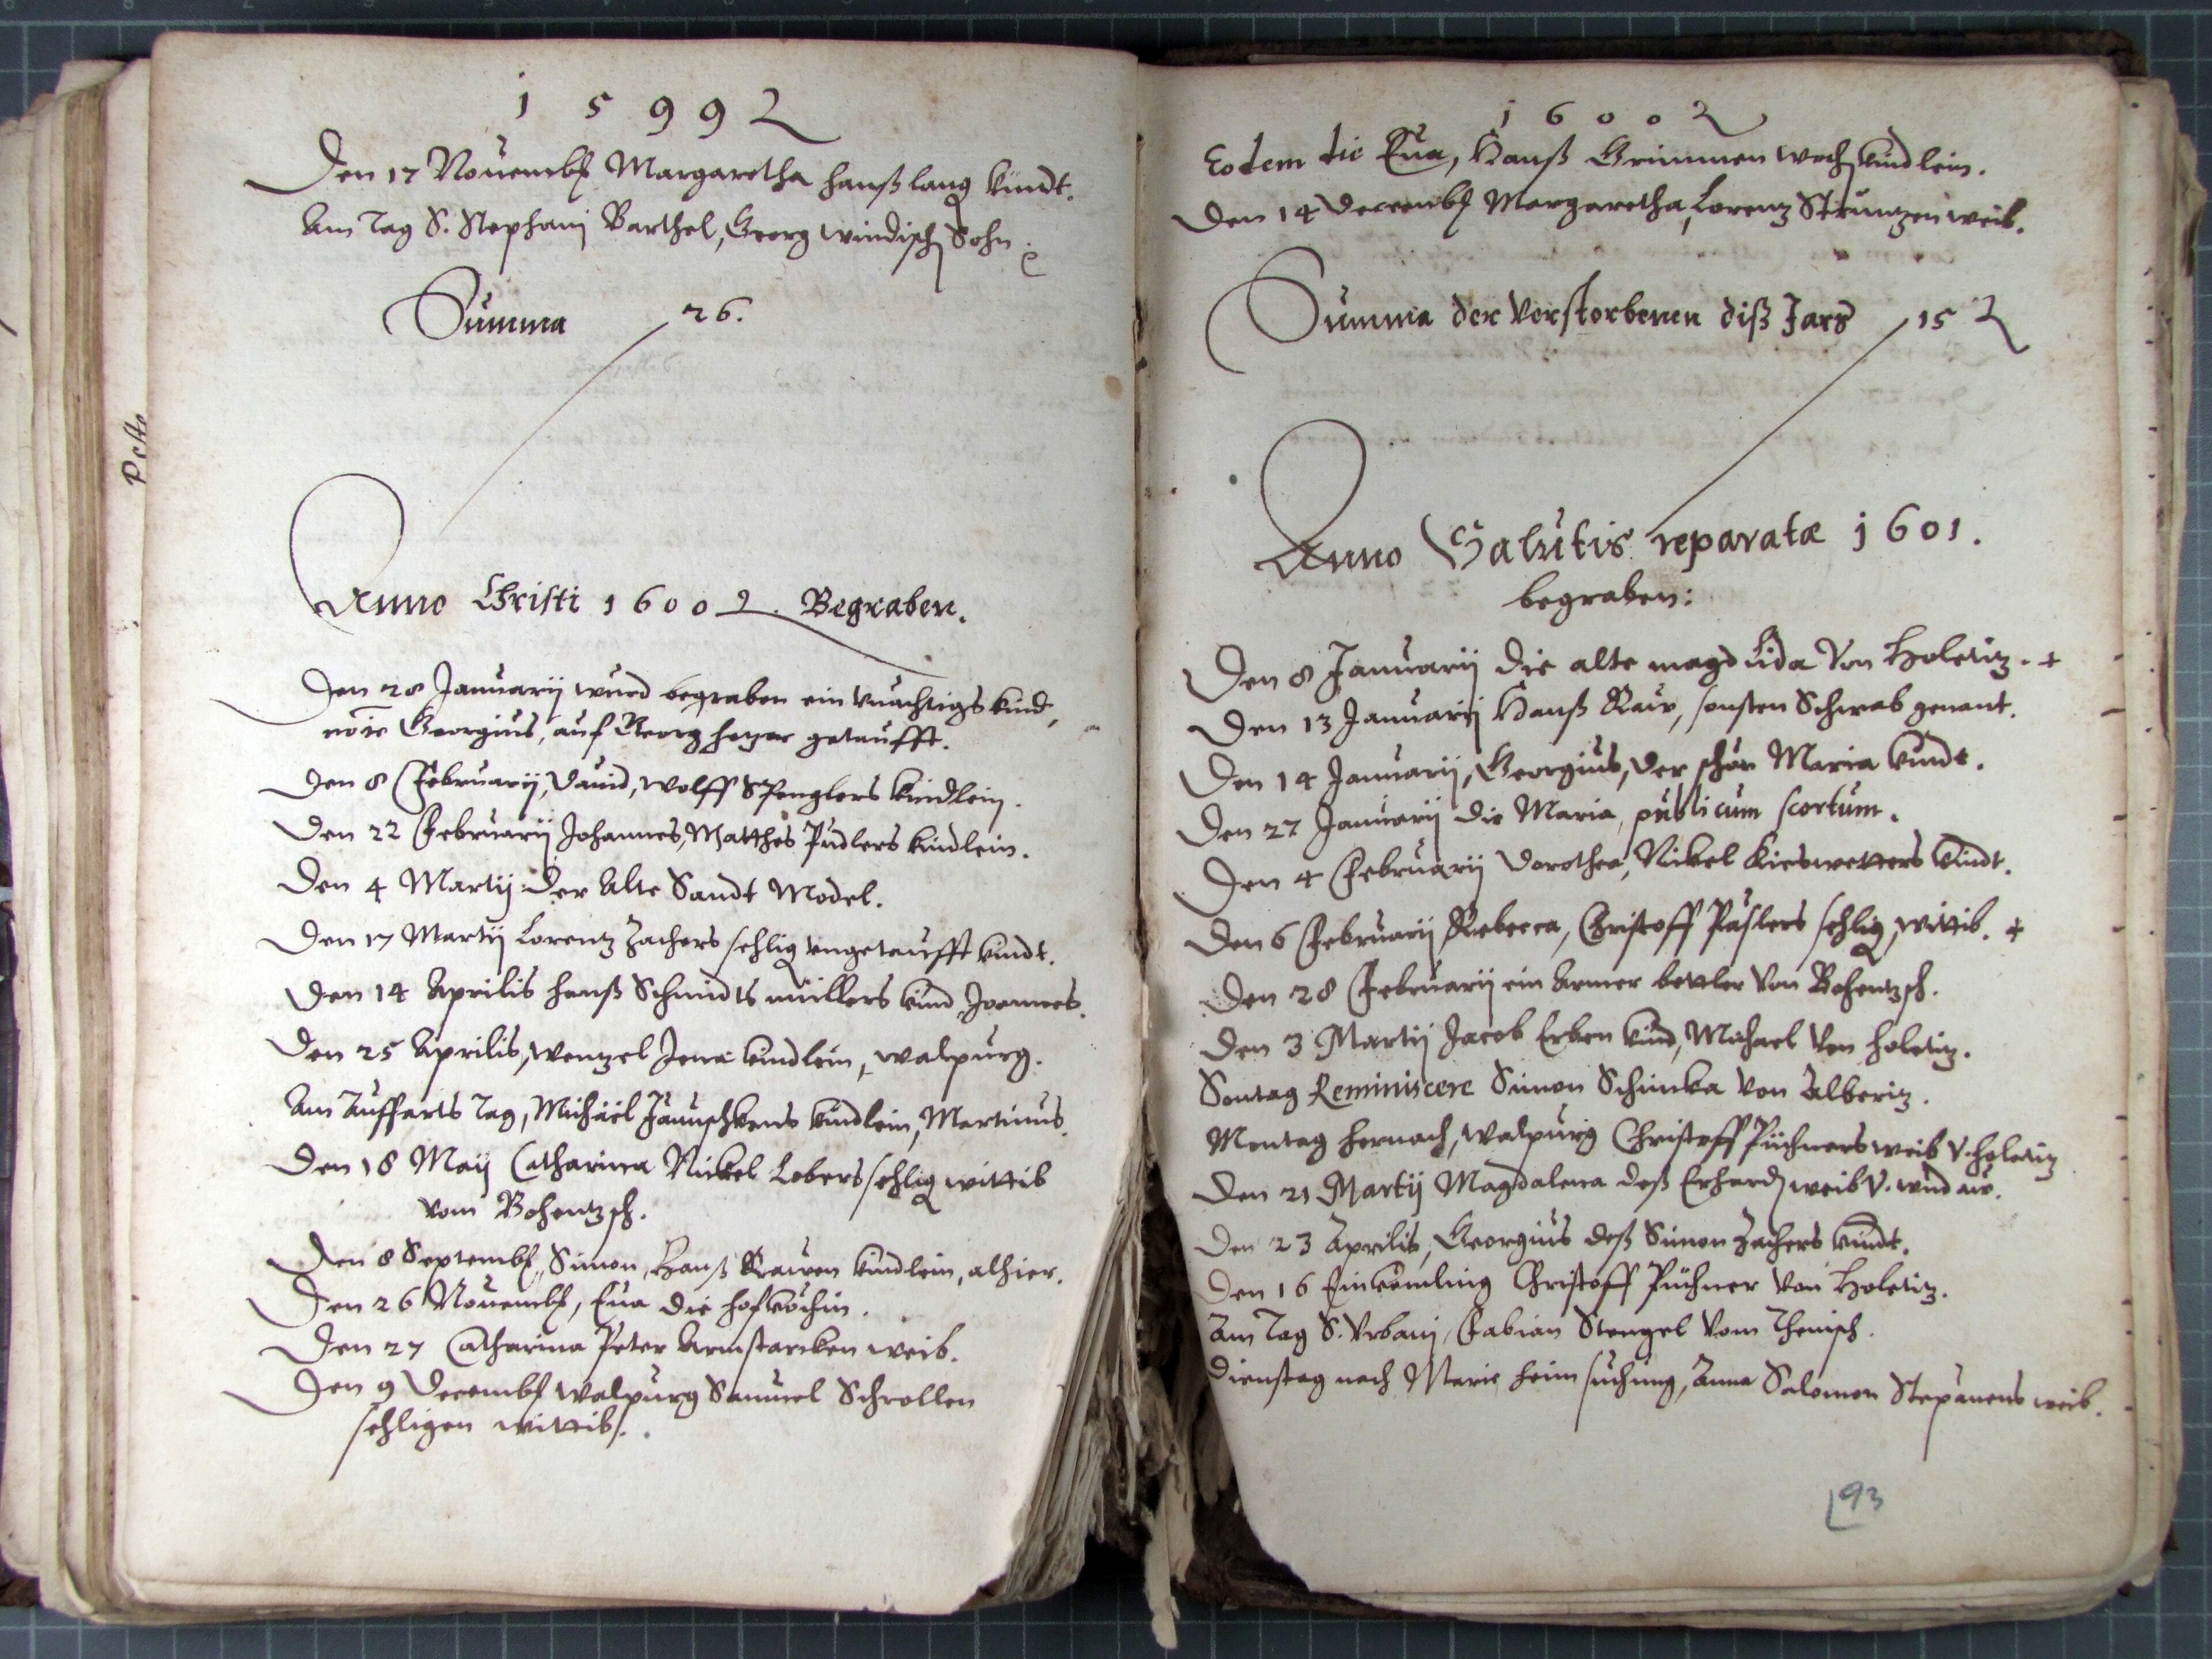 1599
Den 17 Nouemb Margaretha Hanß Lang kindt.
Am Tag S. Stephanj Barthel, Georg windisch Sohn.
Summa 26.
Pest
Anno Christi 1600. Begraben.
Den 28 Januarij wurd begraben ein vnächtigs kind,
nõie Georgius, auf Georg getaufft.
Den 8 Februarij, Dauid, Wolff Spenglers kindlein.
Den 22 Februarij Johannes, Matthes Pudlers kindlein.
Den 4 Martij Der Alte Sandt Model.
Den 17 Martij Lorentz Zachers sehlig vngetaufft kindt.
Den 14 Aprilis Hanß Schmidts müllers kind, Joannes.
Den 25 Aprilis, Wentzel Jena kindlein, Walpurg.
Am Auffarts Tag, Michäel Januschkens kindlein, Martinus.
Den 18 Maij Catharina Nickel Lobers sehlig wittib
vom Bohentzsch.
Den 8 Septemb, Simon, Hanß Rawen kindlein, alhier.
Den 26 Nouemb, Eua die hofköchin.
Den 27 Catharina Peter Armstarcken weib.
Den 9 Decemb Walpurg Samuel Schrollen
sehligen wittib.
1600
Eodem die Eua, Hanß Grimmen kindlein.
Den 14 Decemb Margaretha, Lorentz Struntzen weib.
Summa der Verstorbenen diß Jars 15
Anno Salutis reparatæ 1601.
begraben:
Den 8 Januarij die alte magd Lida Von Holetitz. +
Den 13 Januarij Hanß Raw, sonsten Schwab genant.
Den 14 Januarij, Georgius, der schön Maria kindt.
Den 27 Januarij die Maria, publicum scortum.
Den 4 Februarij Dorothea, Nickel Kieswetters kindt.
Den 6 Februarij Rebecca, Christoff Päslers sehlig, wittib. +
Den 28 Februarij ein Armer bettler Von Bohentzsch.
Den 3 Martij Jacob Erben kind, Michael Von Holetitz.
Sontag Reminiscere Simon Schimka Von Alberitz.
Montag hernach, Walpurg Christoff Püchners weib V. Holetitz
Den 21 Martij Magdalena deß Erhard weib V.
Den 23 Aprilis, Georgius deß Simon Zachers kindt.
Den 16 Christoff Püchner Von Holetitz.
Am Tag S. Vrbanj, Fabian Stengel Vom Thenisch.
Dienstag nach Marie heimsuchung, Anna Salomon Stepanens weib.
93